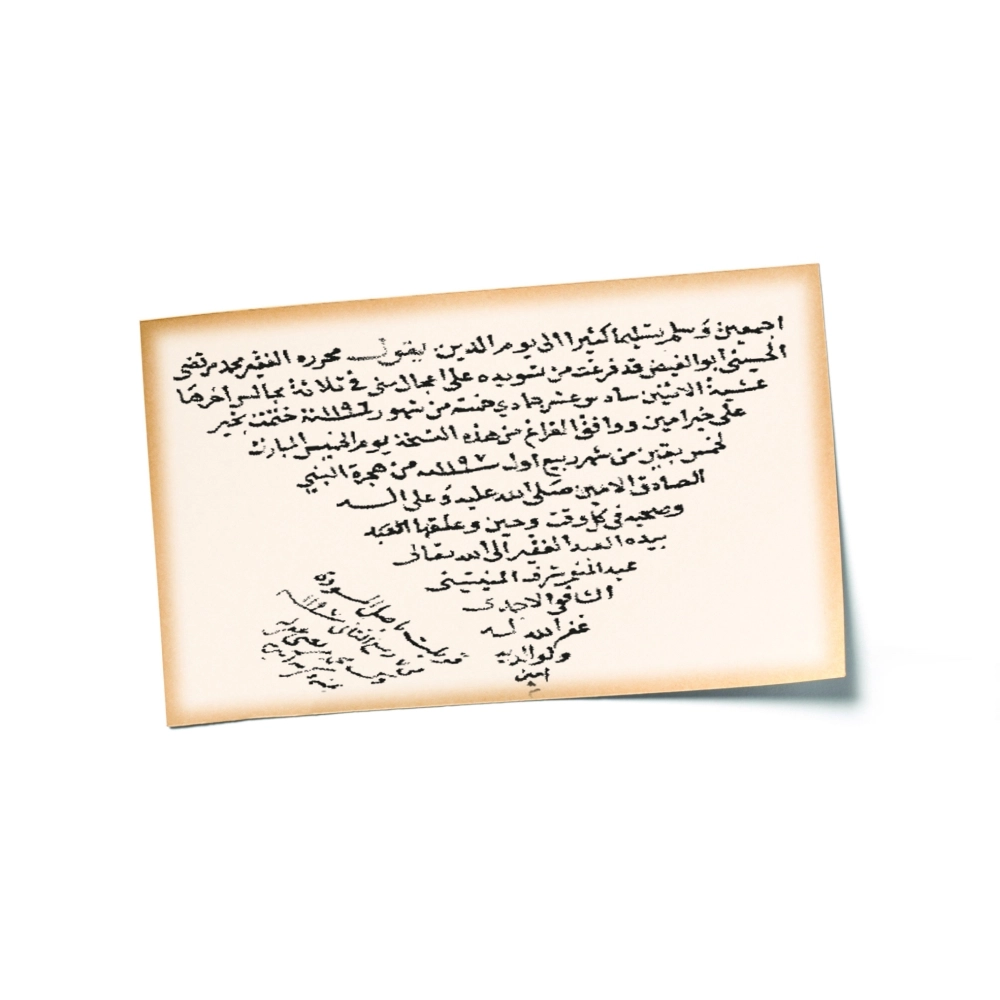 اجمعين وسلم تسليما كثيرا الى يوم الدين يقول محرره الفقير محمد مرتضى
الحسيني ابو الفيض قد فرغت من تسويده على اعجال مني في ثلاثة مجالس اخرها
عشية الاثنين سادس عشر جمادي من شهور سنة ١١٩٦ ختمت بخير
على خير امين ووافق الفراغ من هذه النسخة يوم الخميس المبارك
لخمس بقين من شهر ربيع اول ١١٩٧ من هجرة النبي
الصادق الامين صلى الله عليه وعلى اله
وصحبه في كل وقت وحين وعلقها
بيده العبد الفقير الى الله تعالى
عبد المنعم شرف
الشافعي الاحمدي
غفر الله له
ولوالديه
امين
قوبلت باصل المسودة
ربيع الثاني ١١٩٧